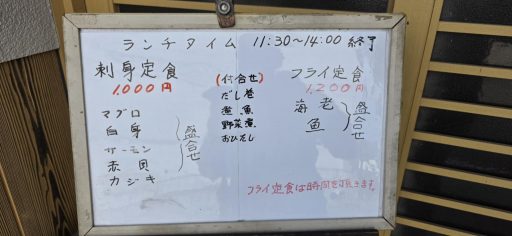 ランチタイム 11:30〜14:00 終了
刺身定食
1,000円
マグロ
白身
サーモン
赤貝
カジキ
盛合せ
(付合せ)
だし巻
煮魚
野菜煮
おひたし
フライ定食
1,200円
海老
魚
盛合せ
フライ定食は時間を頂きます。